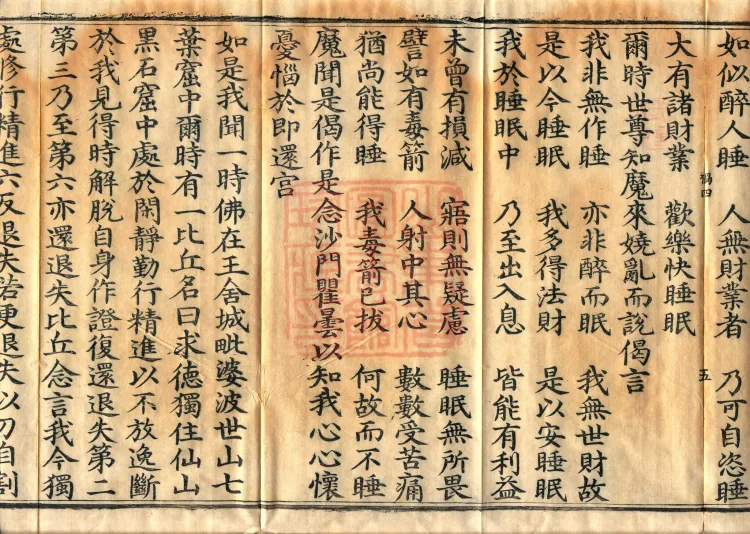 如似醉人睡　人無財業者　乃可自恣睡
大有諸財業　歡樂快睡眠
爾時世尊知魔來嬈亂而說偈言
我非無作睡　亦非醉而眠　我無世財故
是以今睡眠　我多得法財　是以安睡眠
我於睡眠中　乃至出入息　皆能有利益
未曾有損減　寤則無疑慮　睡眠無所畏
譬如有毒箭　人射中其心　數數受苦痛
猶尚能得睡　我毒箭已拔　何故而不睡
魔聞是偈作是念沙門瞿曇以知我心心懷
憂惱於即還宮
如是我聞一時佛在王舍城毗婆波世山七
葉窟中爾時有一比丘名曰求德獨住仙山
黑石窟中處於閑靜勤行精進以不放逸斷
於我見得時解脫自身作證復還退失第二
第三乃至第六亦還退失比丘念言我今獨
處修行精進六反退失若更退失以刀自割